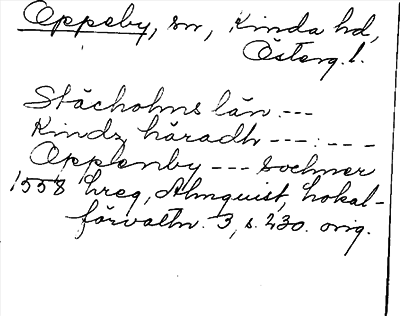 Oppeby, sn, Kinda hd,
Österg. l.
Stächolms län ---
Kindz häradh --- : ---
Opplenby --- sochner
1558 hreg, Almquist, Lokal-
förvaltn. 3, s. 230. orig.